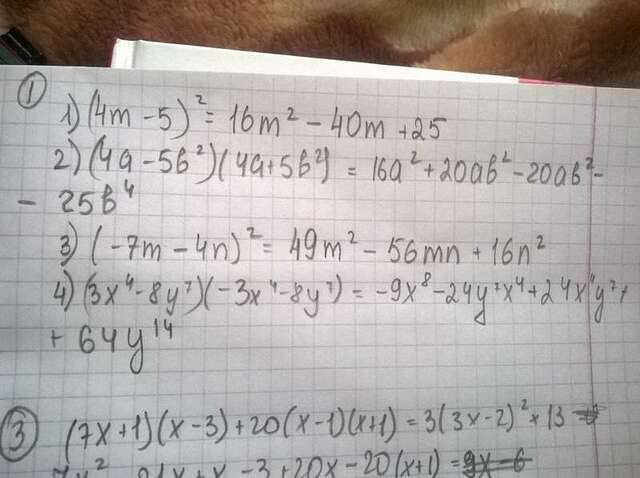 ①
1) (4m - 5)² = 16m² - 40m + 25
2) (4a - 5b²)(4a + 5b²) = 16a² + 20ab² - 20ab² -
- 25b⁴
3) (-7m - 4n)² = 49m² - 56mn + 16n²
4) (3x⁴ - 8y⁷)(-3x⁴ - 8y⁷) = -9x⁸ - 24y⁷x⁴ + 24x⁴y⁷ +
+ 64y¹⁴
③ (7x+1)(x-3) + 20(x-1)(x+1) = 3(3x-2)² + 13
7x² - 21x + x - 3 + 20x - 20(x+1) = 9x - 6